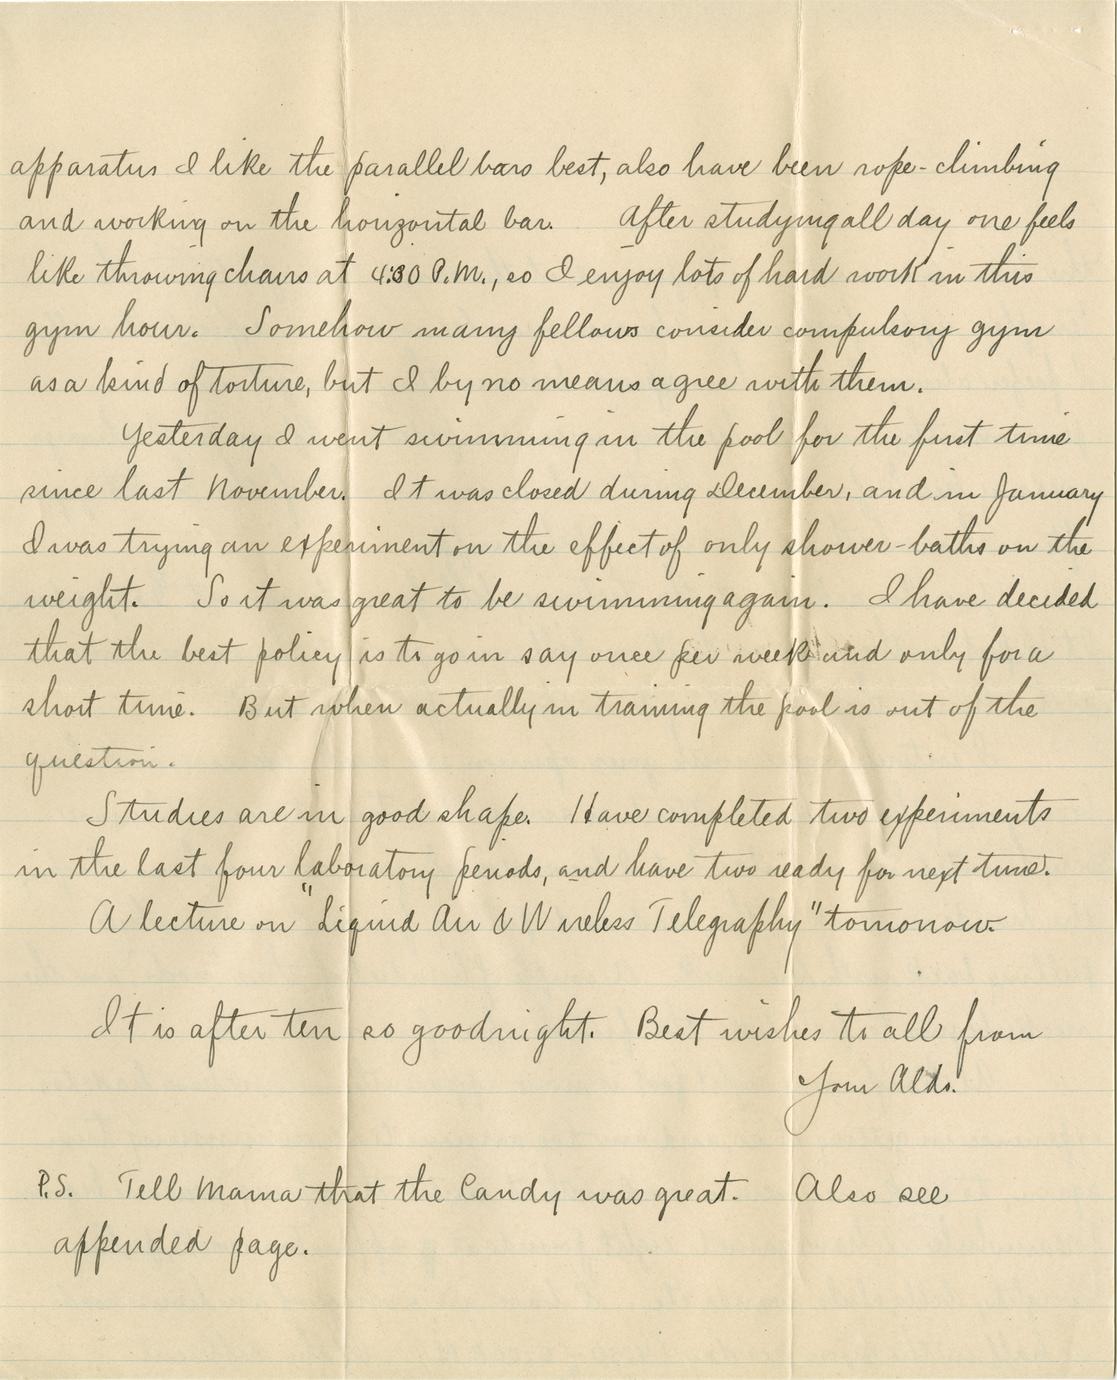 apparatus I like the parallel bars best, also have been rope-climbing
and working on the horizontal bar. After studying all day one feels
like throwing chairs at 4:30 P.M., so I enjoy lots of hard work in this
gym hour. Somehow many fellows consider compulsory gym
as a kind of torture, but I by no means agree with them.
Yesterday I went swimming in the pool for the first time
since last November. It was closed during December, and in January
I was trying an experiment on the effect of only shower-baths on the
weight. So it was great to be swimming again. I have decided
that the best policy is to go in say once per week and only for a
short time. But when actually in training the pool is out of the
question.
Studies are in good shape. Have completed two experiments
in the last four laboratory periods, and have two ready for next time.
A lecture on "Liquid Air & Wireless Telegraphy" tomorrow.
It is after ten so goodnight. Best wishes to all from
Your Aldo.
P.S. Tell Mama that the Candy was great. Also see
appended page.